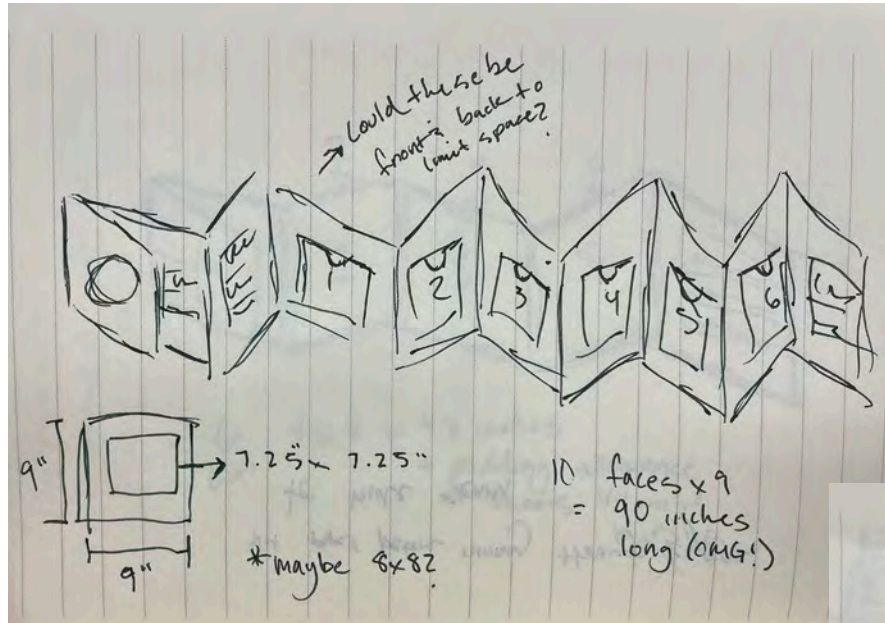 → Could these be
front & back to
limit space?
1
2
3
4
5
6
9"
→ 7.25" x 7.25"
9"
* maybe 8x8?
10 faces x 9
= 90 inches
long (OMG!)